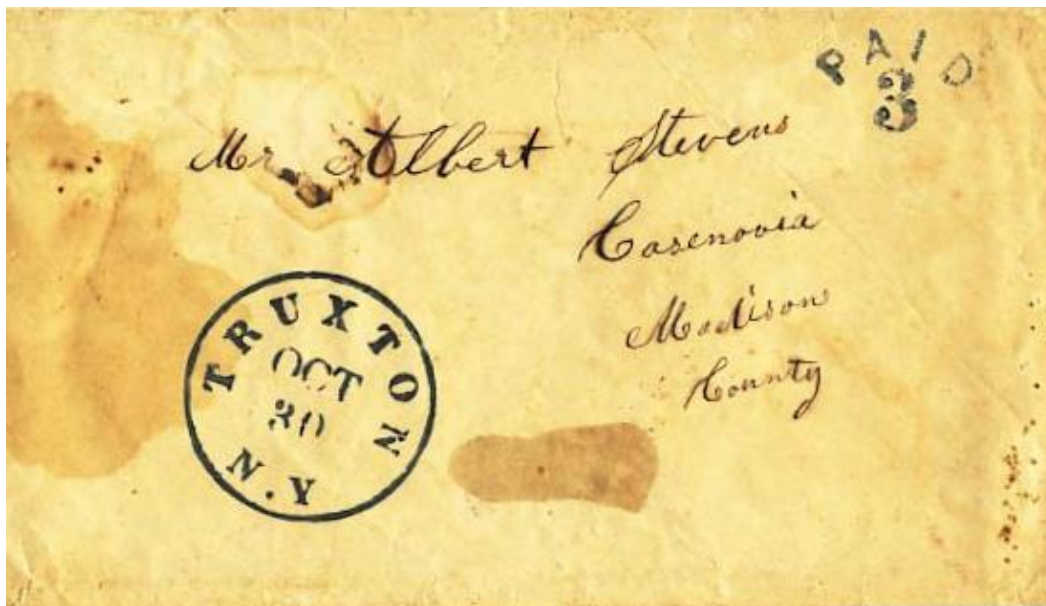 PAID
3
Mr Albert Stevens
Casenovia
Madison
County
TRUXTON
OCT
30
N.Y